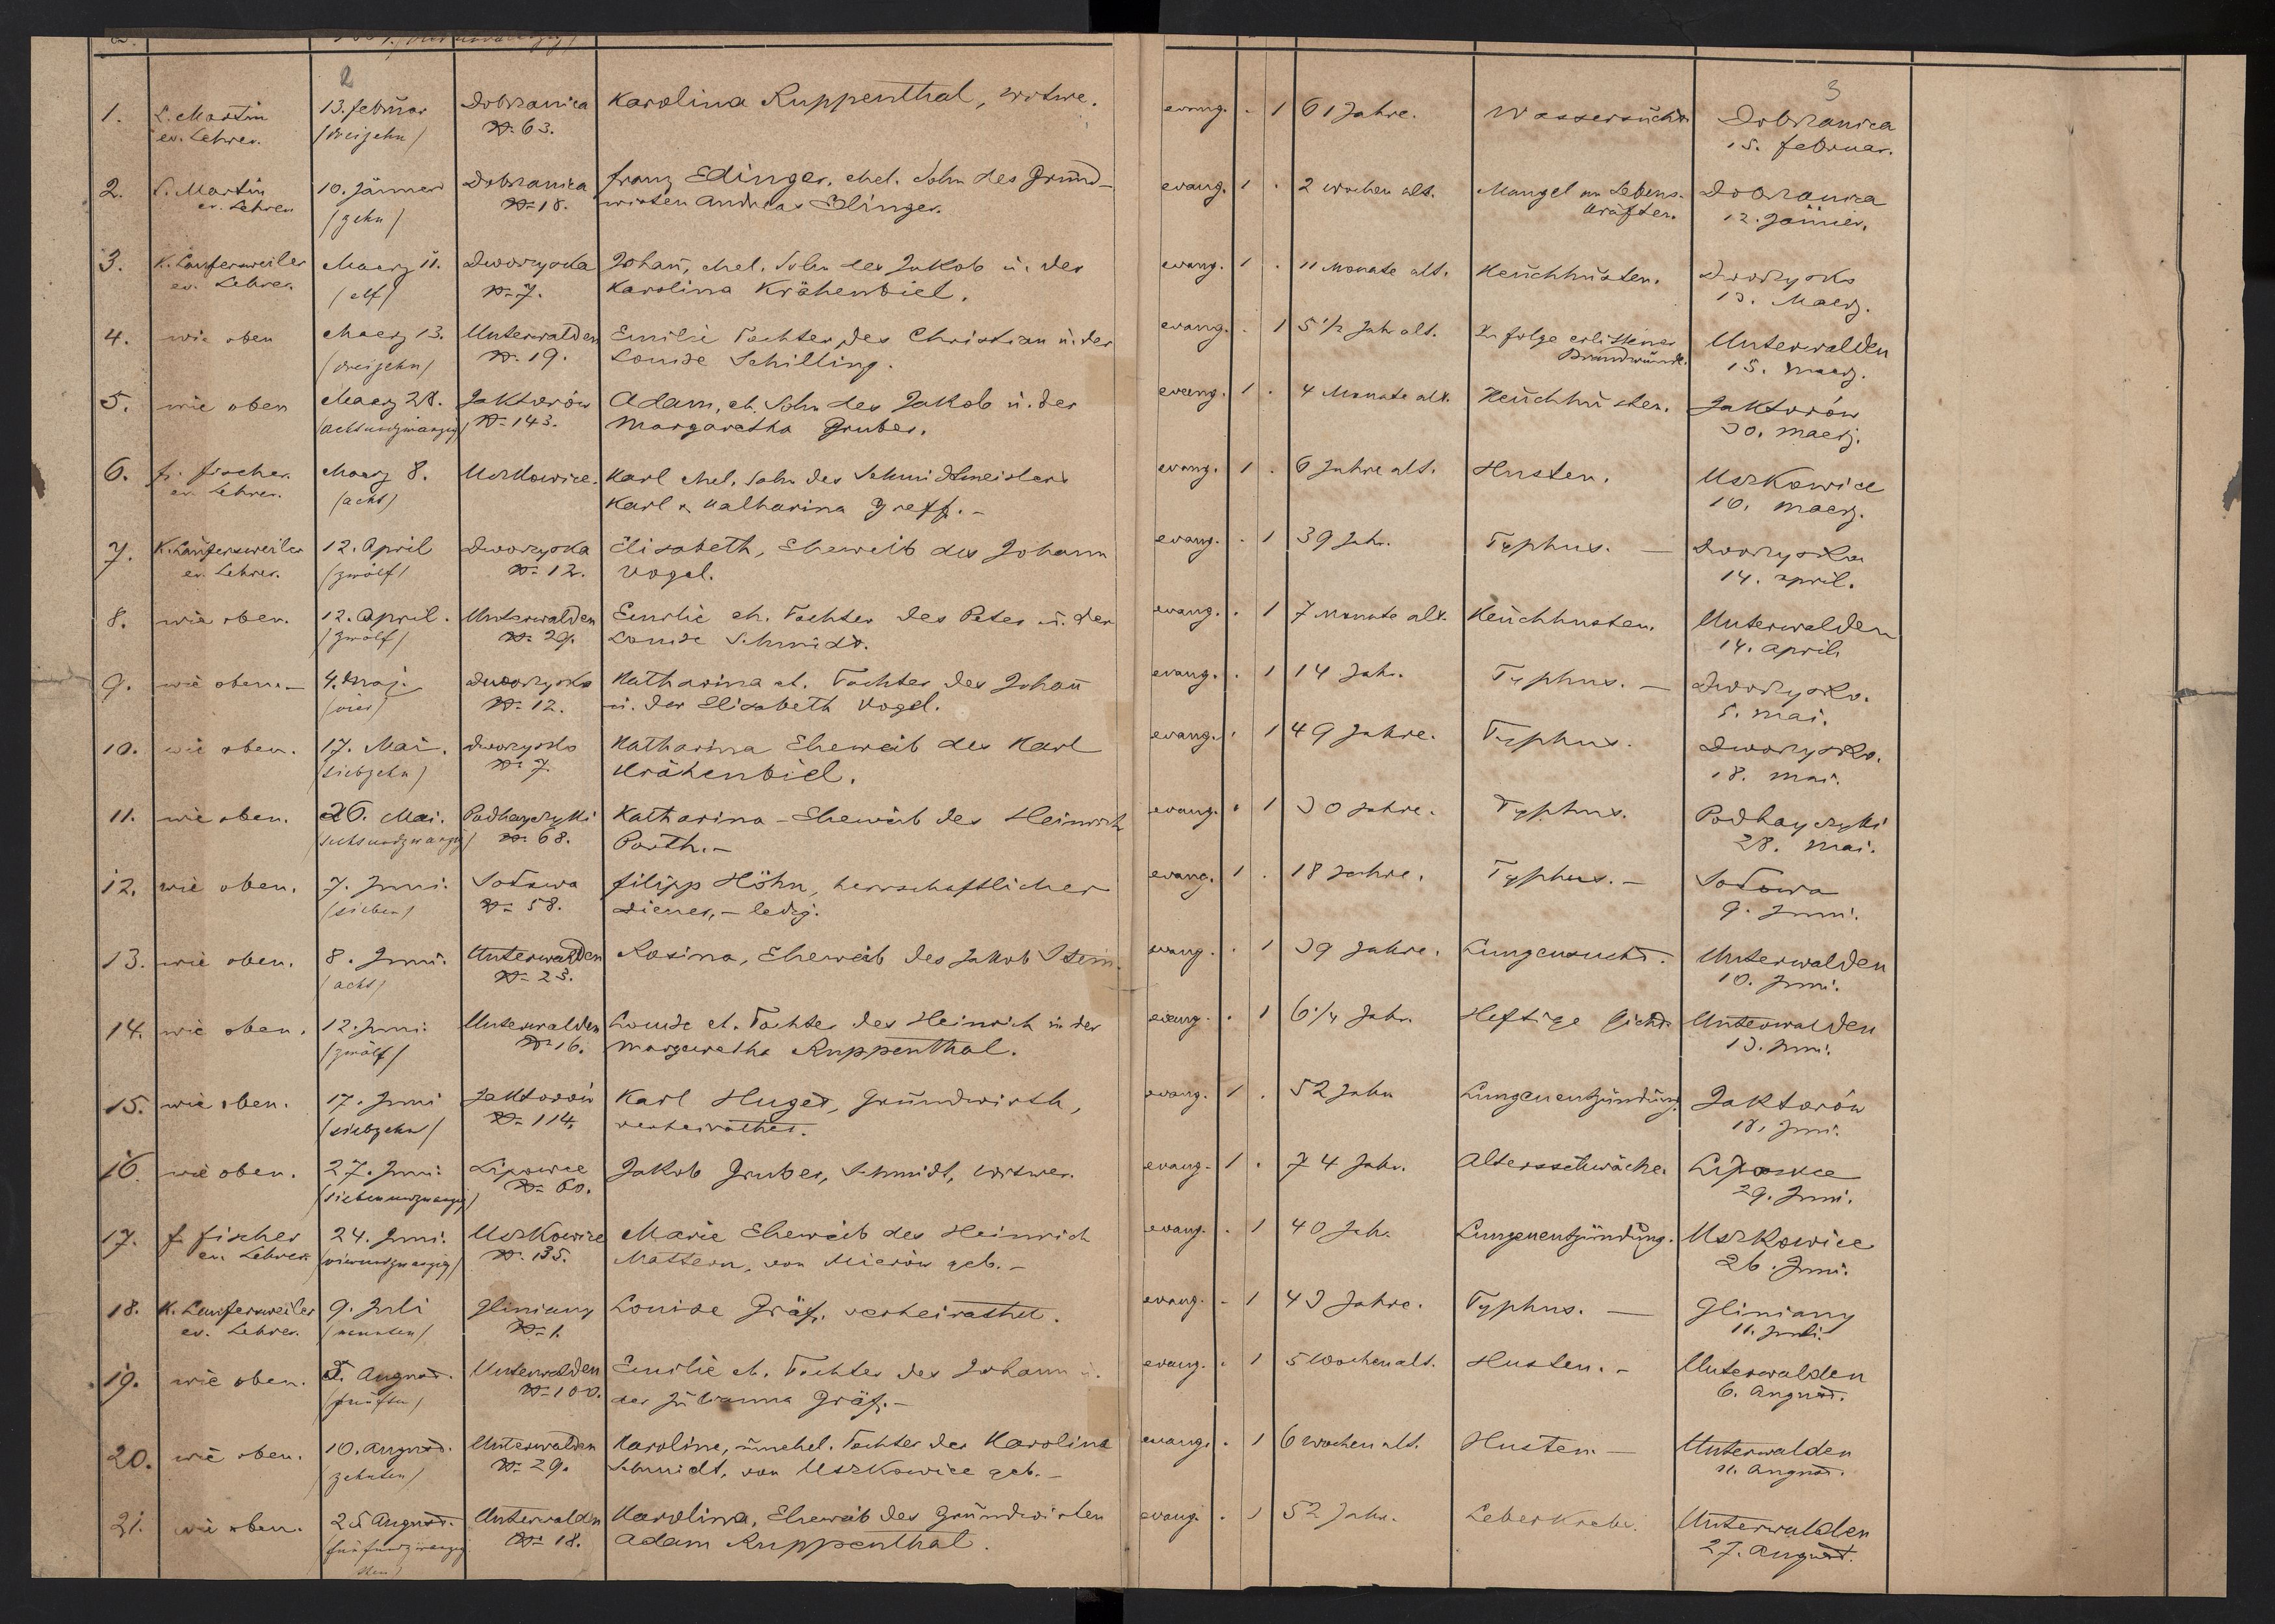 2
3
1. L. Martin 13. Februar Dobzanica Karolina Ruppenthal, Witwe. evang. . 1 61 Jahre. Wassersucht. Dobzanica
ev. Lehrer. /dreizehn/ No 63. 15. Februar.
2. L. Martin 10. Jänner Dobzanica Franz Edinger, ehel. Sohn des Grund- evang. 1 . 2 Wochen alt. Mangel an Lebens- Dobzanica
ev. Lehrer /zehn/ No 18. wirten Andreas Edinger. kräften. 12. Jänner.
3. K. Laufersweiler Maerz 11. Dworzyska Johañ, ehel. Sohn des Jakob u. der evang. 1 . 11 Monate alt. Keuchhusten. Dworzysko
ev. Lehrer. /elf/ No 7. Karolina Krähenbiel. 13. Maerz.
4. wie oben Maerz 13. Unterwalden Emilie Tochter des Christian u. der evang. . 1 5 1/2 Jahr alt. In folge erlittener Unterwalden
/dreizehn/ No 19. Louise Schilling. Brandwunde. 15. Maerz.
5. wie oben Maerz 28. Jaktorów Adam, eh. Sohn des Jakob u. der evang. 1 . 4 Monate alt. Keuchhusten. Jaktorów
/achtundzwanzig/ No 143. Margaretha Gruber. 30. Maerz.
6. F. Fischer Maerz 8. Uszkowice. Karl ehel. Sohn des Schmidtmeisters evang. 1 . 6 Jahre alt. Husten. Uszkowice
ev. Lehrer. /acht/ Karl & Katharina Greff. - 10. Maerz.
7. K. Laufersweiler 12. April Dworzyska Elisabeth, Eheweib des Johann evang. . 1 39 Jahr. Typhus. — Dworzyska
ev. Lehrer. /zwölf/ No 12. Vogel. 14. April.
8. wie oben. 12. April. Unterwalden Emilie eh. Tochter des Peter u. der evang. . 1 7 Monate alt. Keuchhusten. Unterwalden
/zwölf/ No 29. Louise Schmidt. 14. April.
9. wie oben. - 4. Maj. Dworzysko Katharina eh. Tochter des Johañ evang. . 1 14 Jahr. Typhus. — Dworzysko.
/vier/ No 12. u. der Elisabeth Vogel. 5. Mai.
10. wie oben. 17. Mai. Dworzysko Katharina Eheweib des Karl evang. . 1 49 Jahre. Typhus. Dworzysko.
/siebzehn/ No 7. Krähenbiel. 18. Mai.
11. wie oben. 26. Mai. Podhayczyki Katharina - Eheweib des Heinrich evang. . 1 30 Jahre. Typhus. Podhayczyki
/sechsundzwanzig/ No 68. Porth. - 28. Mai.
12. wie oben. 7. Juni. Sołowa Filipp Höhn, herrschaftlicher evang. 1 . 18 Jahre. Typhus. - Sołowa
/sieben/ No 58. Diener, - ledig. 9. Juni.
13. wie oben. 8. Juni. Unterwalden Rosina, Eheweib des Jakob Stein. evang. . 1 39 Jahre. Lungensucht. Unterwalden
/acht/ No 23. 10. Juni.
14. wie oben. 12. Juni. Unterwalden Louise eh. Tochter des Heinrich u der evang. . 1 6 1/4 Jahr. Heftige Gicht. Unterwalden
/zwölf/ No 16. Margaretha Ruppenthal. 13. Juni.
15. wie oben. 17. Juni Jaktorów Karl Huger, Grundwirth, evang. 1 . 52 Jahr Lungenentzündung. Jaktorów
/siebzehn/ No 114. verheirathet. 18. Juni.
16. wie oben. 27. Juni Lipowce Jakob Gruber, Schmidt, Witwer. evang. 1 . 74 Jahr. Altersschwäche. Lipowce
/siebenundzwanzig/ No 60. 29. Juni.
17. F. Fischer 24. Juni. Uszkowice Marie Eheweib des Heinrich evang. . 1 40 Jahr. Lungenentzündung. Uszkowice
ev. Lehrer. /vierundzwanzig/ No 135. Mattern, von Mierów geb. - 26. Juni.
18. K. Laufersweiler 9. Juli Gliniany Louise Gräf, verheirathet. evang. - 1 43 Jahre. Typhus. — Gliniany
ev. Lehrer. /neunten/ No 1. 11. Juli.
19. wie oben. 5. August. Unterwalden Emilie eh. Tochter des Johann u. evang. . 1 5 Wochen alt. Husten. - Unterwalden
/fünften/ No 100. der Julianna Gräf. - 6. August.
20. wie oben. 10. August. Unterwalden Karoline, unehel. Tochter der Karolina evang. . 1 6 Wochen alt. Husten. — Unterwalden
/zehnten/ No 29. Schmidt, von Uszkowice geb. - 11. August.
21. wie oben. 25 August. Unterwalden Karolina, Eheweib des Grundwirten evang. . 1 52 Jahr. Leberkrebs. Unterwalden
/fünfundzwanzig No 18. Adam Ruppenthal. 27. August.
sten/